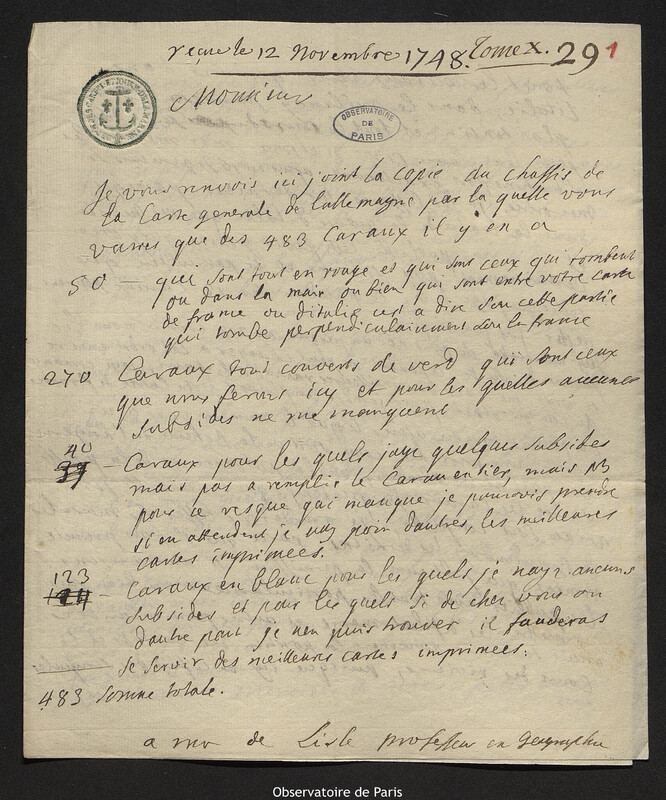 reçue le 12 Novembre 1748. Tome X. 29 1
Monsieur
OBSERVATOIRE
DE
PARIS
Je vous renvois ici joint la copie du chassis de
la Carte generale de lallemagne par la quelle vous
varres que des 483 Caraux il y en a
50 – qui sont tout en rouge et qui sont ceux qui tombent
ou dans la mair ou bien qui sont entre votre carte
de france ou ditalie cest a dire sou cette partie
qui tombe perpendiculairement sou la france
270 Caraux tout couverts de verd qui sont ceux
que nous ferons icy et pour les quelles aucunes
subsides ne me manquent
40
39 – Caraux pour les quels jaye quelques subsides
mais pas a remplir le Carau entier, mais NB
pour ce resque qui manque je pourrois prendre
si en attendent je nay poin dautres, les meilleures
cartes imprimees.
123
124 – Caraux en blanc pour les quels je naye aucuns
subsides et pour les quels si de cher vous ou
dautre part je nen puis trouver il fauderas
se servir des meilleures cartes imprimees.
483 Somme totale.
a mr de Lisle professeur en Geographie
Observatoire de Paris